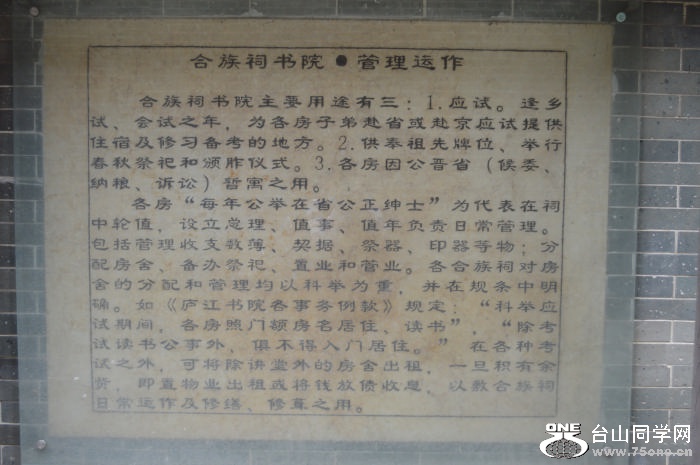 合族祠书院●管理运作
合族祠书院主要用途有三：1.应试。逢乡
试、会试之年，为各房子弟赴省或赴京应试提供
住宿及修习备考的地方。2.供奉祖先牌位、举行
春秋祭祀和颁胙仪式。3.各房因公晋省（候委、
纳粮、诉讼）暂寓之用。
各房“每年公举在省公正绅士”为代表在祠
中轮值，设立总理、值事、值年负责日常管理。
包括管理收支数薄、契据、祭器、印器等物；分
配房舍、备办祭祀、置业和营业。各合族祠对房
舍的分配和管理均以科举为重，并在规条中明
确。如《庐江书院各事务例款》规定：“科举应
试期间，各房照门额房名居住、读书”，“除考
试读书公事外，俱不得入门居住。”在各种考
试之外，可将除讲堂外的房舍出租，一旦积有余
资，即置物业出租或将钱放债收息，以敷合族祠
日常运作及修缮、修葺之用。
ONE 台山同学网
www.75one.cn